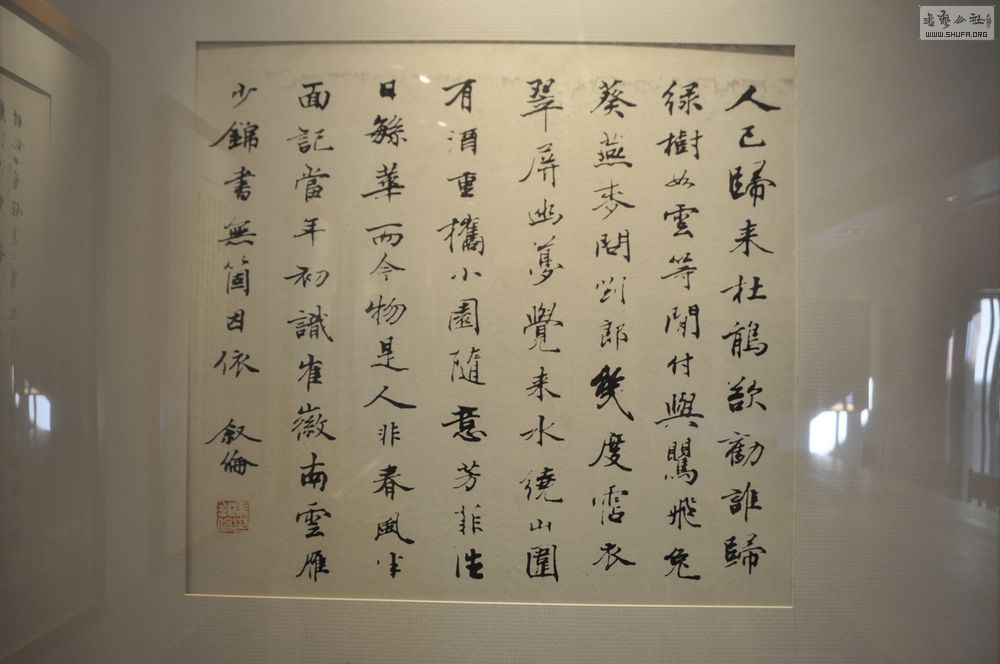 人已歸来杜鵑欲勸誰歸
緑樹如雲等閒付與鶯飛兔
葵燕麥問劉郎幾度霑衣
翠屏幽夢覺来水繞山圍
有酒重攜小園隨意芳菲往
日繁華而今物是人非春風半
面記當年初識崔徽南雲雁
少錦書無箇因依 叙倫
書藝公社
WWW.SHUFA.ORG